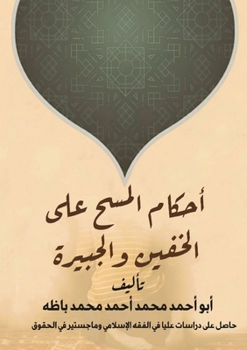 أحكام المسح على
الخفين والجبيرة
تأليف
أبو أحمد محمد أحمد محمد باظه
حاصل على دراسات عليا في الفقه الإسلامي وماجستير في الحقوق